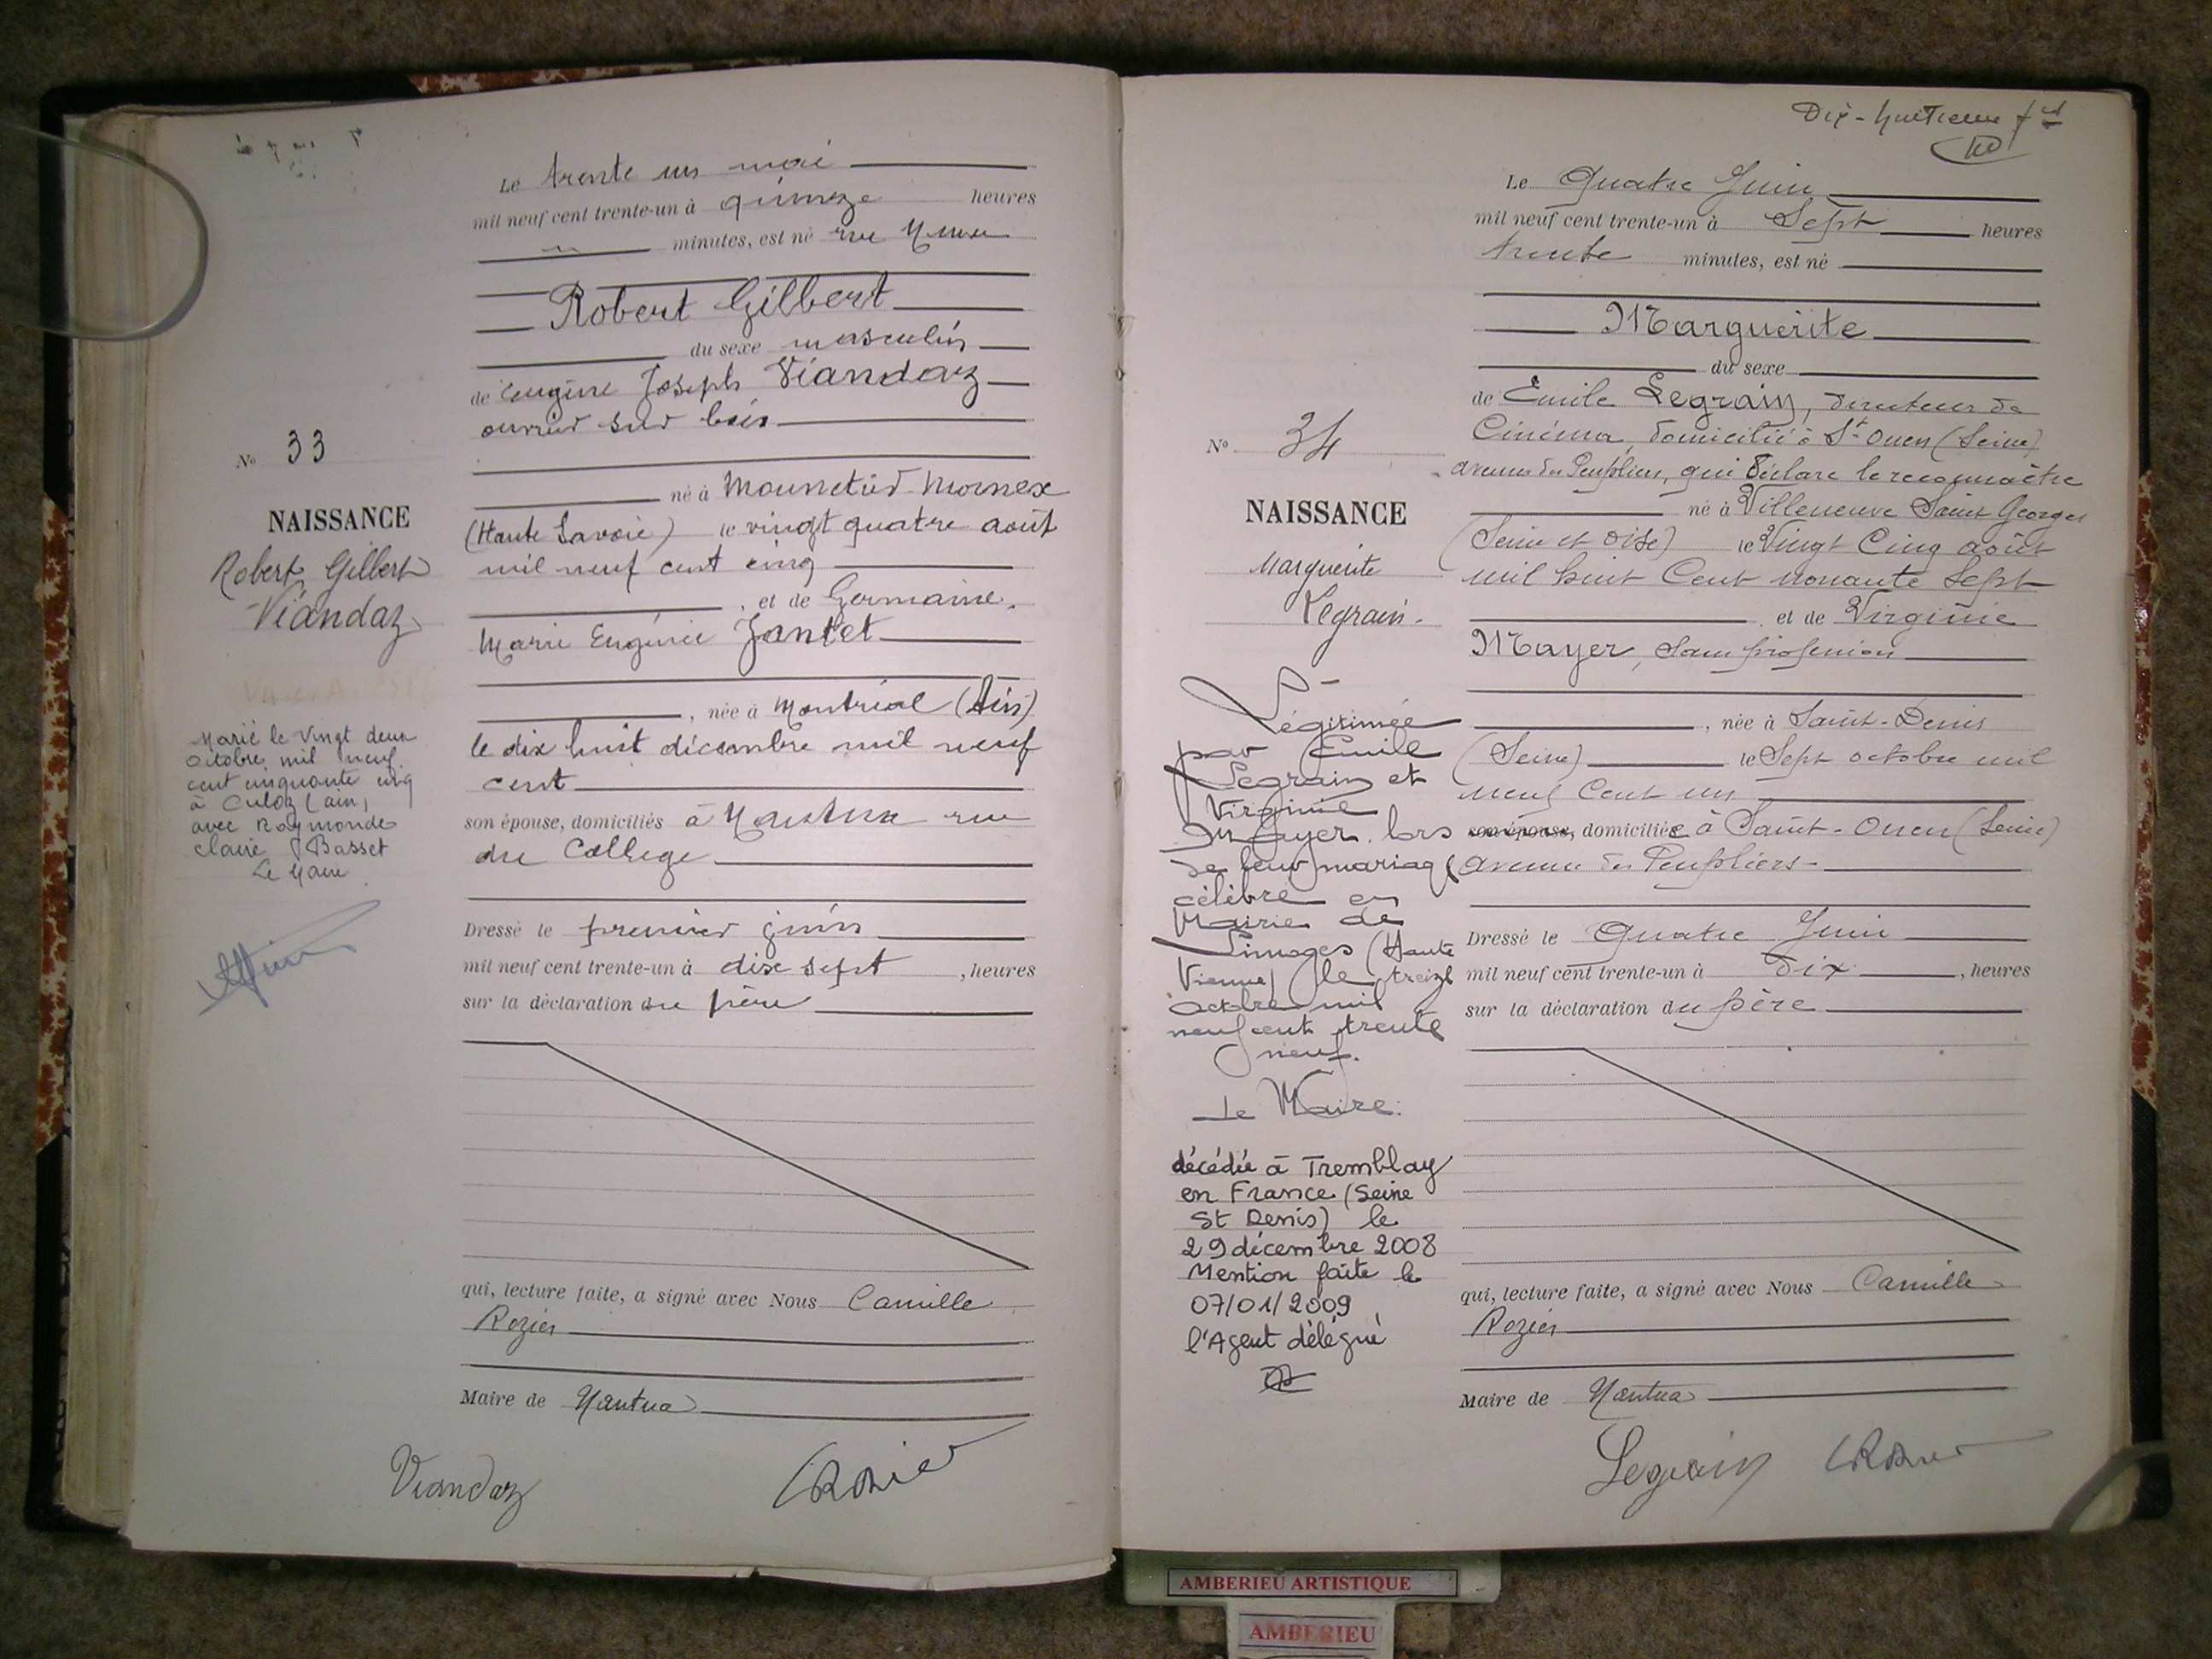 Le trente un mai
mil neuf cent trente-un à quinze heures
minutes, est né rue
Robert Gilbert
du sexe masculin
de Eugène Joseph Viandaz
ouvrier sur bois
né à Mounetier-Mornex
(Haute Savoie) le vingt quatre août
mil neuf cent cinq
, et de Germaine
Marie Eugénie Jantet
, née à Montréal (Ain)
le dix huit décembre mil neuf
cent
son épouse, domiciliés à Nantua rue
du College
Dressé le premier juin
mil neuf cent trente-un à dix sept , heures
sur la déclaration du père
qui, lecture faite, a signé avec Nous Camille
Rozier
Maire de Nantua
Viandaz CRozier
No 33
NAISSANCE
Robert Gilbert
Viandaz
Marié le vingt deux
octobre mil neuf
cent cinquante cinq
à Culoz (ain)
avec Raymonde
Claire Basset
Le Maire
Dix-huitième
Le Quatre Juin
mil neuf cent trente-un à Sept heures
trente minutes, est né
Marguerite
du sexe
de Emile Legrain, directeur de
Cinéma, domicilié à St Ouen (Seine)
avenue des Peupliers, qui déclare le reconnaître
né à Villeneuve Saint Georges
(Seine et Oise) le Vingt Cinq août
mil huit Cent nonante Sept
, et de Virginie
Mayer, sans profession
, née à Saint-Denis
(Seine) le Sept octobre mil
neuf Cent un
son épouse, domiciliée à Saint-Ouen (Seine)
avenue des Peupliers
Dressé le Quatre Juin
mil neuf cent trente-un à Dix , heures
sur la déclaration du père
qui, lecture faite, a signé avec Nous Camille
Rozier
Maire de Nantua
Legrain CRozier
No 34
NAISSANCE
Marguerite
Legrain.
Légitimée
par Emile
Legrain et
Virginie
Mayer lors
de leur mariage
célébré en
Mairie de
Limoges (Haute
Vienne) le treize
octobre mil
neuf cent trente
neuf.
Le Maire.
décédée à Tremblay
en France (Seine
St Denis) le
29 décembre 2008
Mention faite le
07/01/2009
l'Agent délégué
AMBERIEU ARTISTIQUE
AMBERIEU